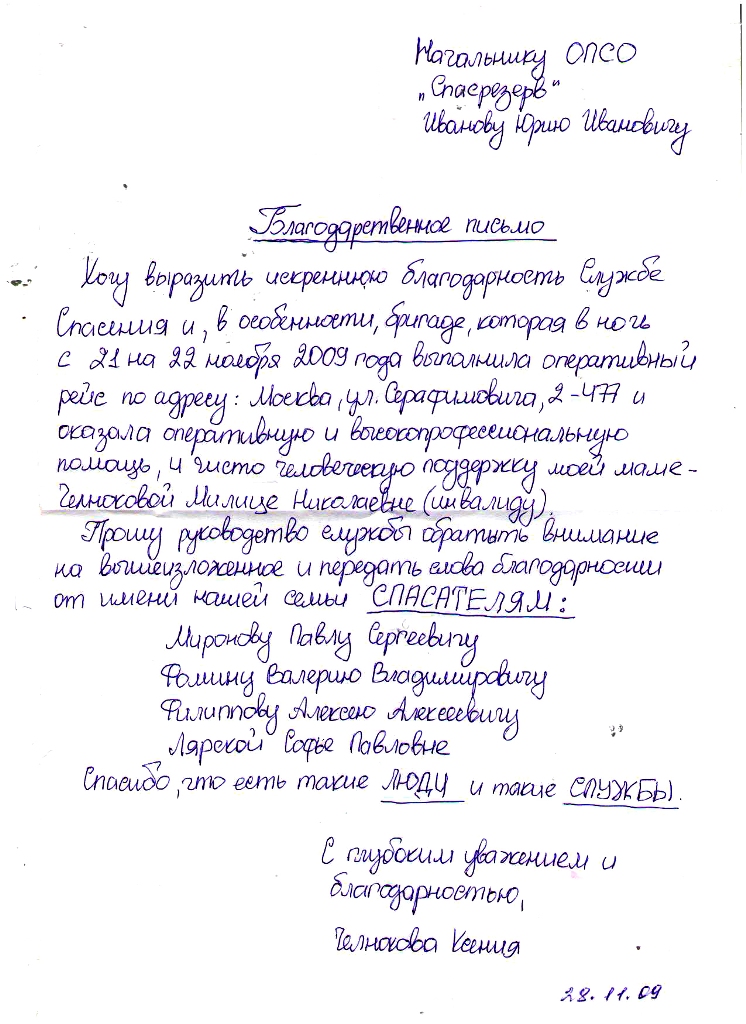 Начальнику ОПСО
„Спасрезерв"
Иванову Юрию Ивановичу
Благодарственное письмо
Хочу выразить искреннюю благодарность Службе
Спасения и, в особенности, бригаде, которая в ночь
с 21 на 22 ноября 2009 года выполнила оперативный
рейс по адресу: Москва, ул. Серафимовича, 2-477 и
оказала оперативную и высокопрофессиональную
помощь, и чисто человеческую поддержку моей маме -
Челноковой Милице Николаевне (инвалиду).
Прошу руководство службы обратить внимание
на вышеизложенное и передать слова благодарности
от имени нашей семьи СПАСАТЕЛЯМ:
Миронову Павлу Сергеевичу
Фомину Валерию Владимировичу
Филиппову Алексею Алексеевичу
Лярской Софье Павловне
Спасибо, что есть такие ЛЮДИ и такие СЛУЖБЫ.
С глубоким уважением и
благодарностью,
Челнокова Ксения
28.11.09